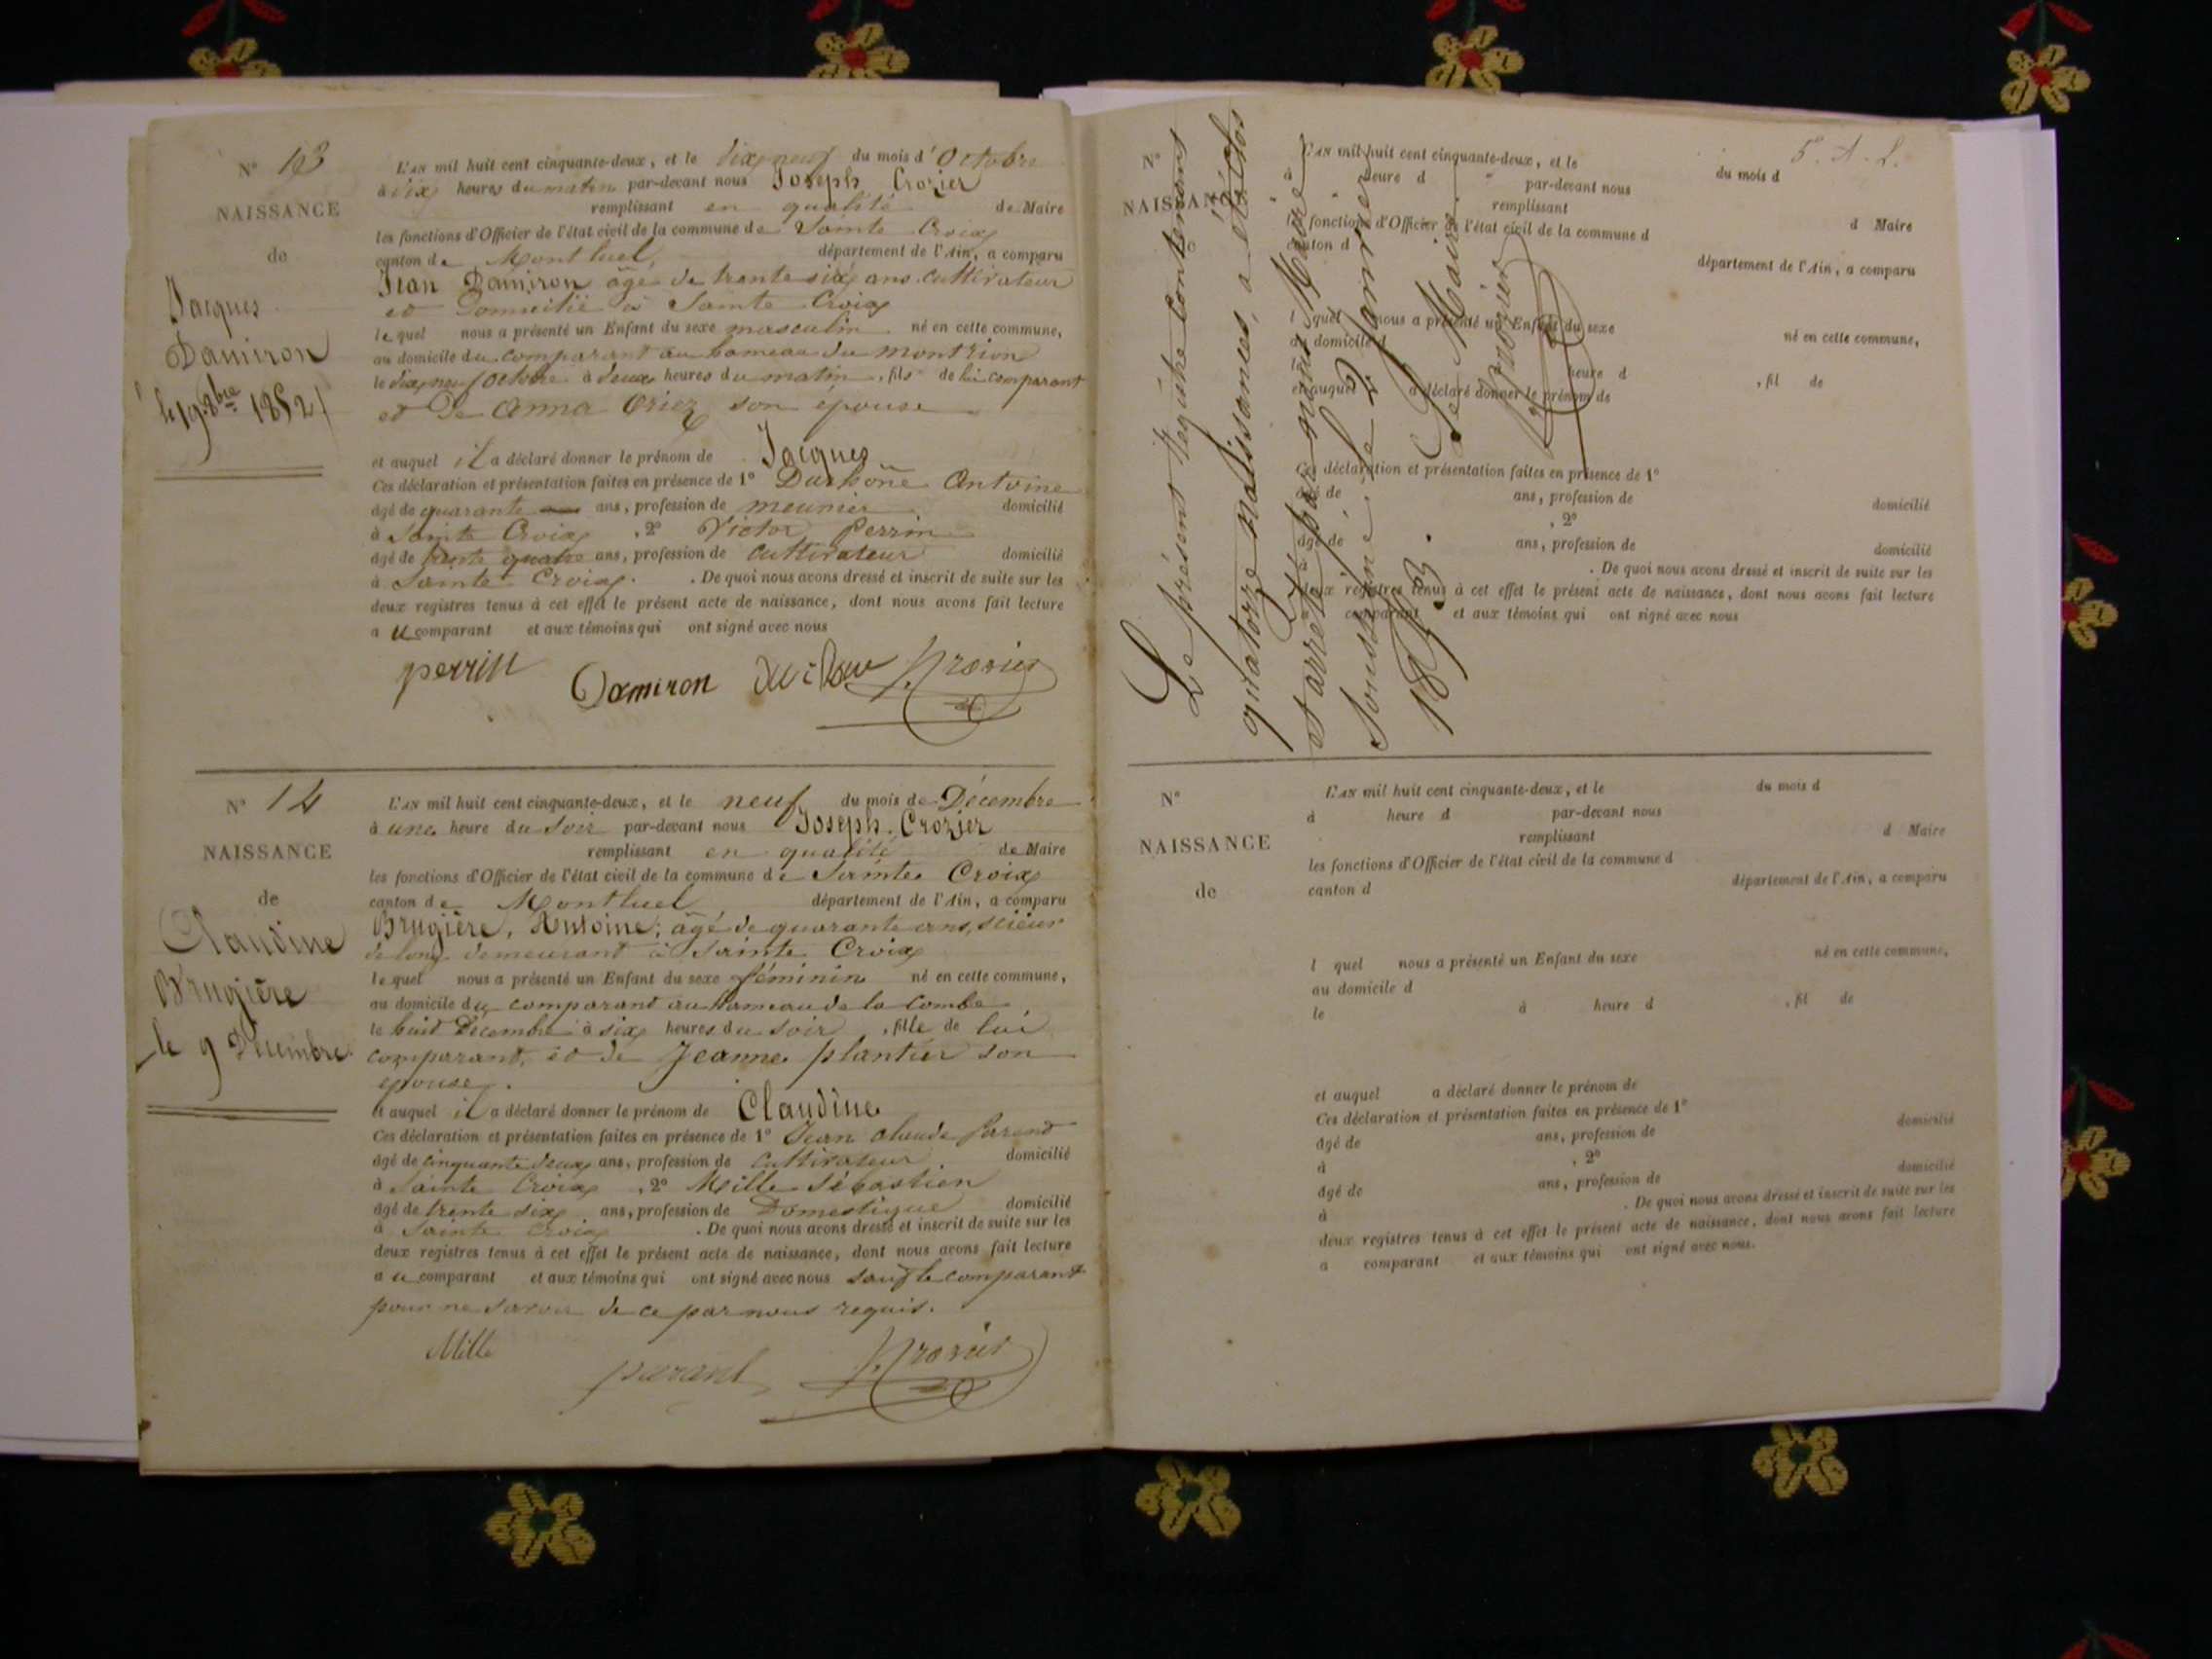 N° 13
NAISSANCE
de
Jacques
Damiron
le 19 8bre 1852
L'AN mil huit cent cinquante-deux, et le dix neuf du mois d'Octobre
à dix heures du matin par-devant nous Joseph Crozier
remplissant en qualité de Maire
les fonctions d'Officier de l'état civil de la commune de Sainte Croix
canton de Montluel, département de l'Ain, a comparu
Jean Damiron âgé de trente six ans cultivateur
et Domicilié à Sainte Croix
lequel nous a présenté un Enfant du sexe masculin né en cette commune,
au domicile du comparant au hameau du Montrion
le dix neuf Octobre à deux heures du matin, fils de lui comparant
et de Anna son épouse
et auquel il a déclaré donner le prénom de Jacques
Ces déclaration et présentation faites en présence de 1° Antoine
âgé de quarante ans, profession de meunier domicilié
à Sainte Croix, 2° Victor Perrin
âgé de trente quatre ans, profession de cultivateur domicilié
à Sainte Croix. De quoi nous avons dressé et inscrit de suite sur les
deux registres tenus à cet effet le présent acte de naissance, dont nous avons fait lecture
au comparant et aux témoins qui ont signé avec nous
perrin Damiron J. Crozier
N° 14
NAISSANCE
de
Claudine
Brugière
le 9 Décembre
L'AN mil huit cent cinquante-deux, et le neuf du mois de Décembre
à une heure du Soir par-devant nous Joseph Crozier
remplissant en qualité de Maire
les fonctions d'Officier de l'état civil de la commune de Sainte Croix
canton de Montluel département de l'Ain, a comparu
Brugière, Antoine, âgé de quarante ans, scieur
de long demeurant à Sainte Croix
lequel nous a présenté un Enfant du sexe féminin né en cette commune,
au domicile du comparant au hameau de la Combe
le huit Décembre à six heures du soir, fille de lui
comparant, et de Jeanne plantier son
épouse.
et auquel il a déclaré donner le prénom de Claudine
Ces déclaration et présentation faites en présence de 1° Jean claude Parand
âgé de cinquante deux ans, profession de cultivateur domicilié
à Sainte Croix, 2° Mille Sébastien
âgé de trente six ans, profession de Domestique domicilié
à Sainte Croix. De quoi nous avons dressé et inscrit de suite sur les
deux registres tenus à cet effet le présent acte de naissance, dont nous avons fait lecture
au comparant et aux témoins qui ont signé avec nous sauf le comparant
pour ne savoir de ce par nous requis.
Mille parand J. Crozier
5. A. L.
Le présent Registre contenant
quatorze naissances, a été clos
et arreté par nous Maire
soussigné, le 2 Janvier
1853.
Le Maire
J. Crozier
N°
NAISSANCE
L'AN mil huit cent cinquante-deux, et le du mois d
à heure d par-devant nous
remplissant d Maire
les fonctions d'Officier de l'état civil de la commune d
canton d département de l'Ain, a comparu
l quel nous a présenté un Enfant du sexe né en cette commune,
au domicile d
le heure d , fil de
et auquel a déclaré donner le prénom de
Ces déclaration et présentation faites en présence de 1°
âgé de ans, profession de domicilié
à , 2°
âgé de ans, profession de domicilié
à . De quoi nous avons dressé et inscrit de suite sur les
deux registres tenus à cet effet le présent acte de naissance, dont nous avons fait lecture
a comparant et aux témoins qui ont signé avec nous
N°
NAISSANCE
de
L'AN mil huit cent cinquante-deux, et le du mois d
à heure d par-devant nous
remplissant d Maire
les fonctions d'Officier de l'état civil de la commune d
canton d département de l'Ain, a comparu
l quel nous a présenté un Enfant du sexe né en cette commune,
au domicile d
le à heure d , fil de
et auquel a déclaré donner le prénom de
Ces déclaration et présentation faites en présence de 1°
âgé de ans, profession de domicilié
à , 2°
âgé de ans, profession de domicilié
à . De quoi nous avons dressé et inscrit de suite sur les
deux registres tenus à cet effet le présent acte de naissance, dont nous avons fait lecture
a comparant et aux témoins qui ont signé avec nous.